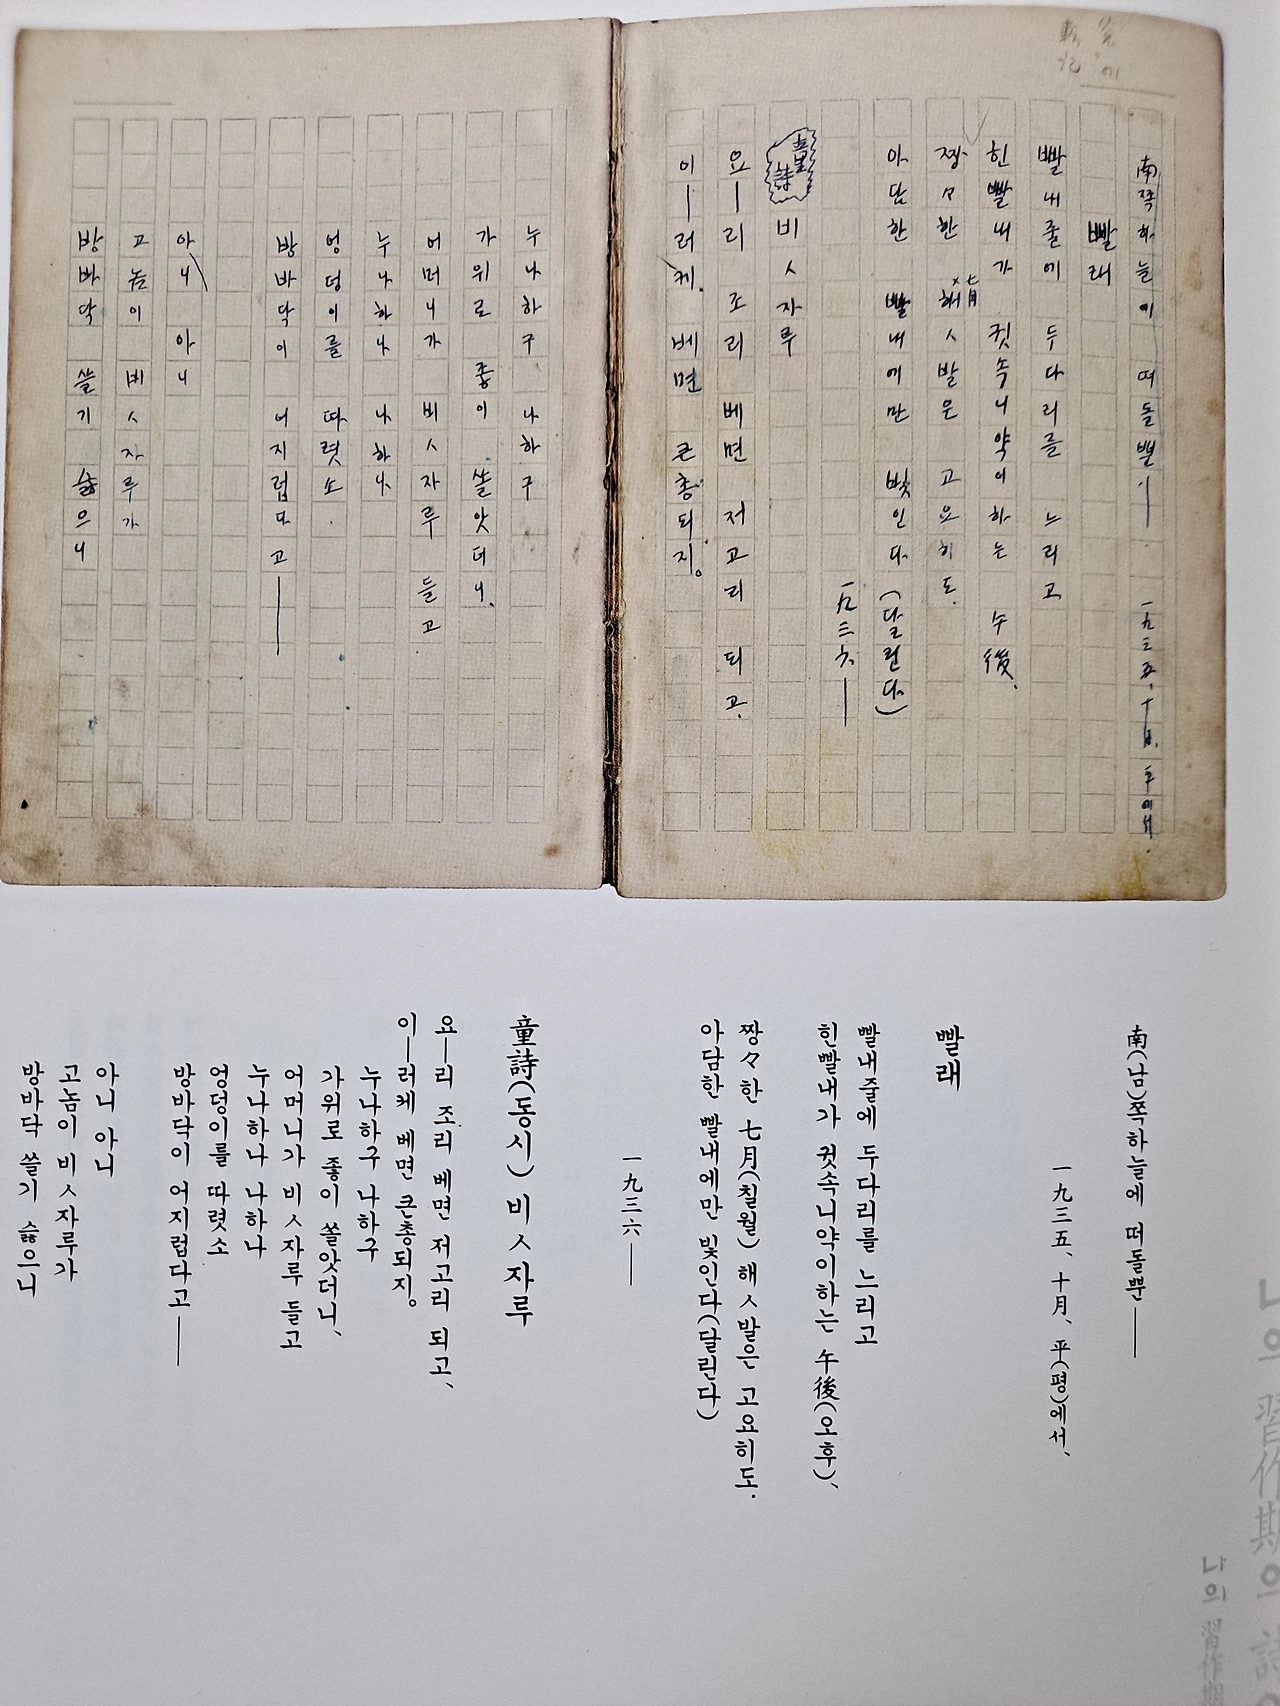 南쪽하늘에 떠돌뿐—. 一九三五、十月. 平에서.
빨래
빨내줄에 두다리를 느리고
힌빨내가 귓속니약이하는 午後、
짱々한 七月 해ㅅ발은 고요히도.
아담한 빨내에만 빛인다. (달린다)
一九三六. —
童詩 비ㅅ자루
요—리 조리 베면 저고리 되고、
이—러케. 베면 큰총되지。
누나하구 나하구
가위로 좋이 쏠앗더니、
어머니가 비ㅅ자루 들고
누나하나 나하나
엉덩이를 따렷소.
방바닥이 어지럽다고—
아니 아니
고놈이 비ㅅ자루가
방바닥 쓸기 슳으니
南(남)쪽하늘에 떠돌뿐—
一九三五、十月、平(평)에서、
빨래
빨내줄에 두다리를 느리고
힌빨내가 귓속니약이하는 午後(오후)、
짱々한 七月(칠월) 해ㅅ발은 고요히도.
아담한 빨내에만 빛인다(달린다)
一九三六—
童詩(동시) 비ㅅ자루
요—리 조리 베면 저고리 되고、
이—러케 베면 큰총되지。
누나하구 나하구
가위로 좋이 쏠앗더니、
어머니가 비ㅅ자루 들고
누나하나 나하나
엉덩이를 따렷소
방바닥이 어지럽다고—
아니 아니
고놈이 비ㅅ자루가
방바닥 쓸기 슳으니
나의 習作期의 詩
나의 習作期